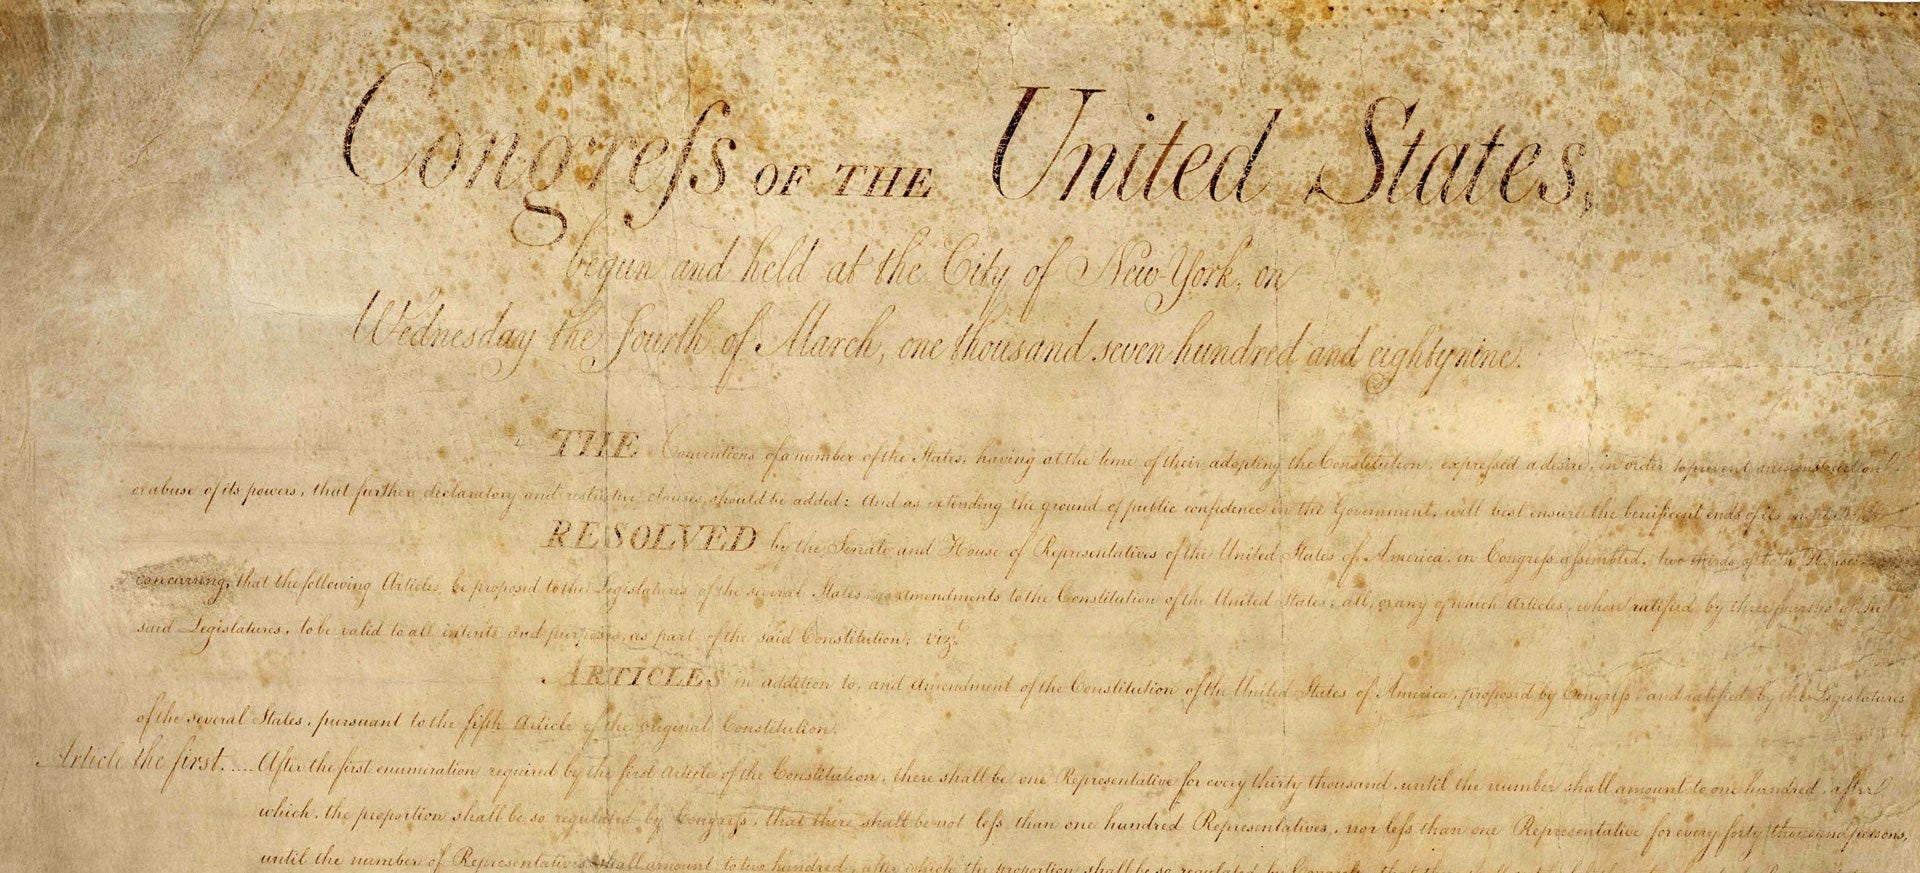 Congreſs OF THE United States,
begun and held at the City of New-York, on
Wednesday the fourth of March, one thousand seven hundred and eighty nine.
THE Conventions of a number of the States, having at the time of their adopting the Constitution, expreſsed a desire, in order to prevent misconstruction
or abuse of its powers, that further declaratory and restrictive clauses should be added: And as extending the ground of public confidence in the Government, will best ensure the beneficent ends of its
RESOLVED by the Senate and House of Representatives of the United States of America, in Congreſs aſsembled, two thirds of both Houses
concurring, that the following Articles be proposed to the Legislatures of the several States, as amendments to the Constitution of the United States, all, or any of which Articles, when ratified by three fourths of the
said Legislatures, to be valid to all intents and purposes, as part of the said Constitution; vizt.
ARTICLES in addition to, and amendment of the Constitution of the United States of America, proposed by Congreſs, and ratified by the Legislatures
of the several States, pursuant to the fifth Article of the original Constitution.
Article the first..... After the first enumeration required by the first Article of the Constitution, there shall be one Representative for every thirty thousand, until the number shall amount to one hundred, after
which, the proportion shall be so regulated by Congreſs, that there shall be not leſs than one hundred Representatives, nor leſs than one Representative for every forty thousand persons,
until the number of Representatives shall amount to two hundred, after which the proportion shall be so regulated by Congreſs, that there